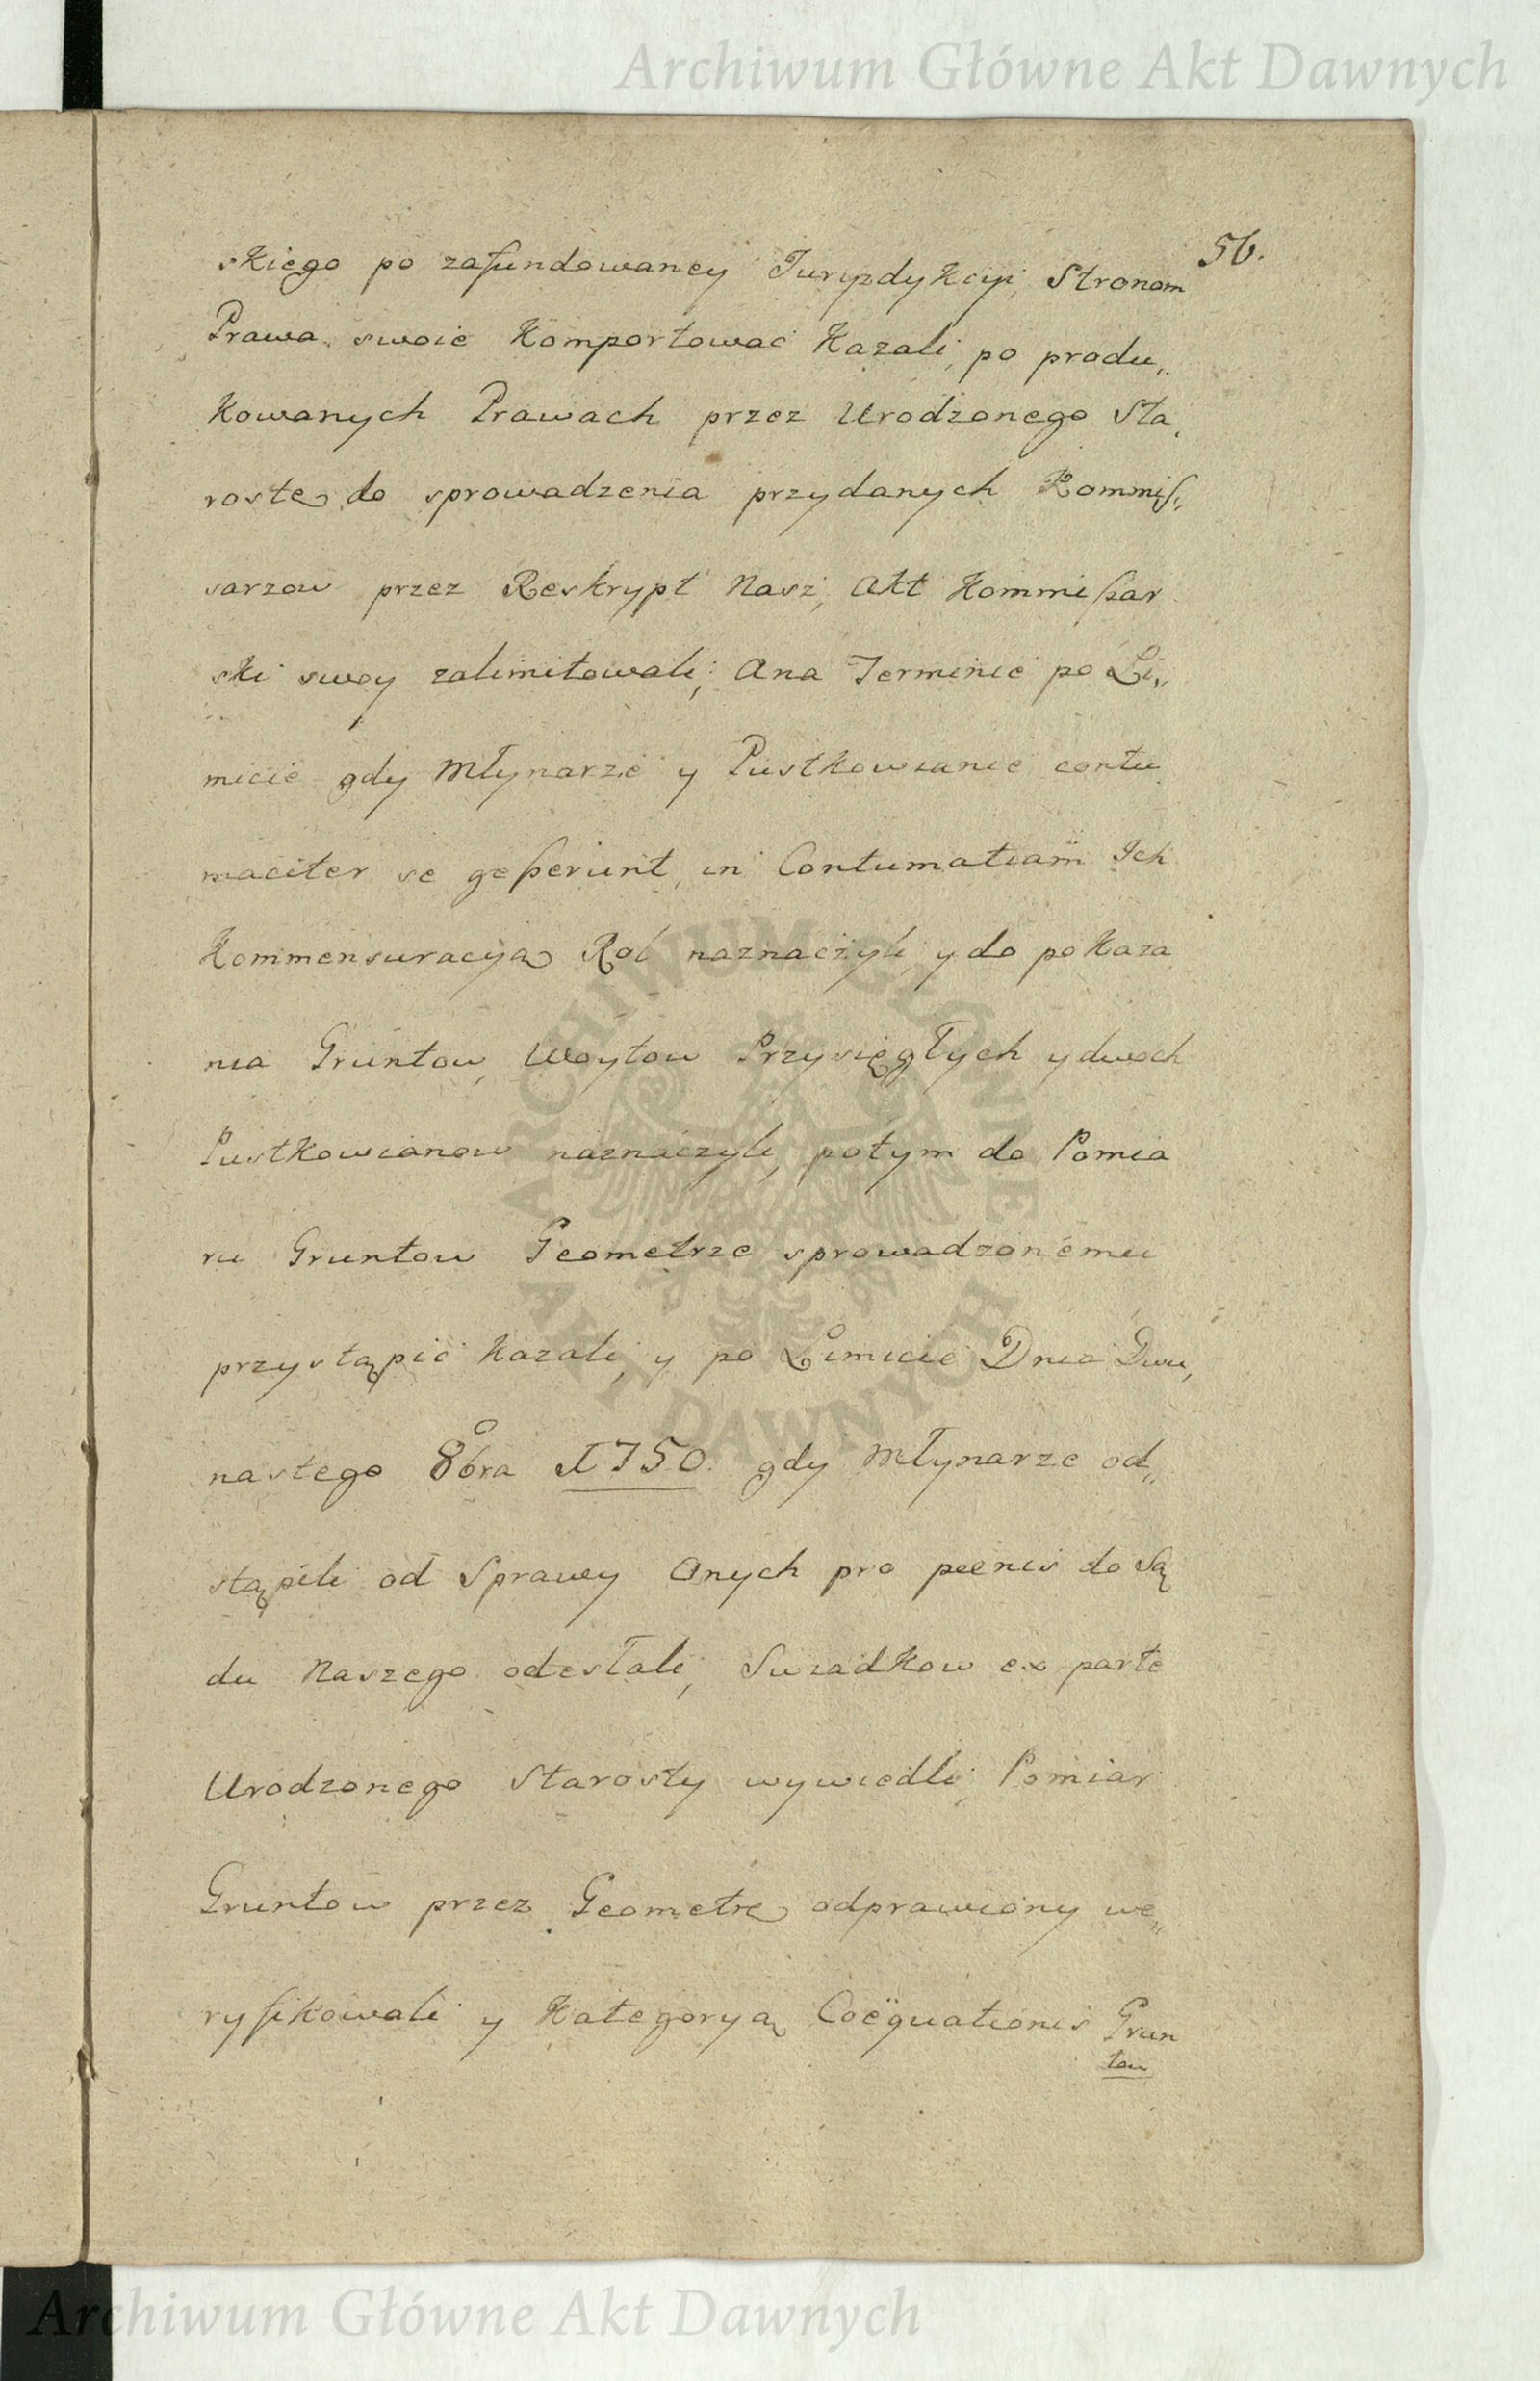 Archiwum Główne Akt Dawnych
56.
skiego po zafundowaney Juryzdykcyi, Stronom
Prawa swoie Komportować Kazali, po produ„
kowanych Prawach przez Urodzonego Sta„
rostę do sprowadzenia przydanych Kommiſ„
sarzow przez Reskrypt Nasz, Akt Kommißar
ski swoy zalimitowali; Ana Terminie po Li„
micie gdy Młynarze y Pustkowianie contu
maciter se geßerunt, in Contumatiam Ich
Kommensuracyą Rol naznaczyli, y do pokaza
nia Gruntow, Woytow Przysięgłych y dwoch
Pustkowianow naznaczyli, potym do Pomia
ru Gruntow Geometrze sprowadzonemu
przystąpić kazali, y po Limicie Dnia Dwu„
nastego 8bra 1750. gdy Młynarze od„
stąpili od Sprawy Onych pro poenis do Są
du Naszego odesłali, Swiadkow ex parte
Urodzonego Starosty wywiedli, Pomiar
Gruntow przez Geometrę odprawiony we„
ryfikowali y Kategoryą Coëquationis Grun
tow
ARCHIWUM GŁÓWNE AKT DAWNYCH
Archiwum Główne Akt Dawnych